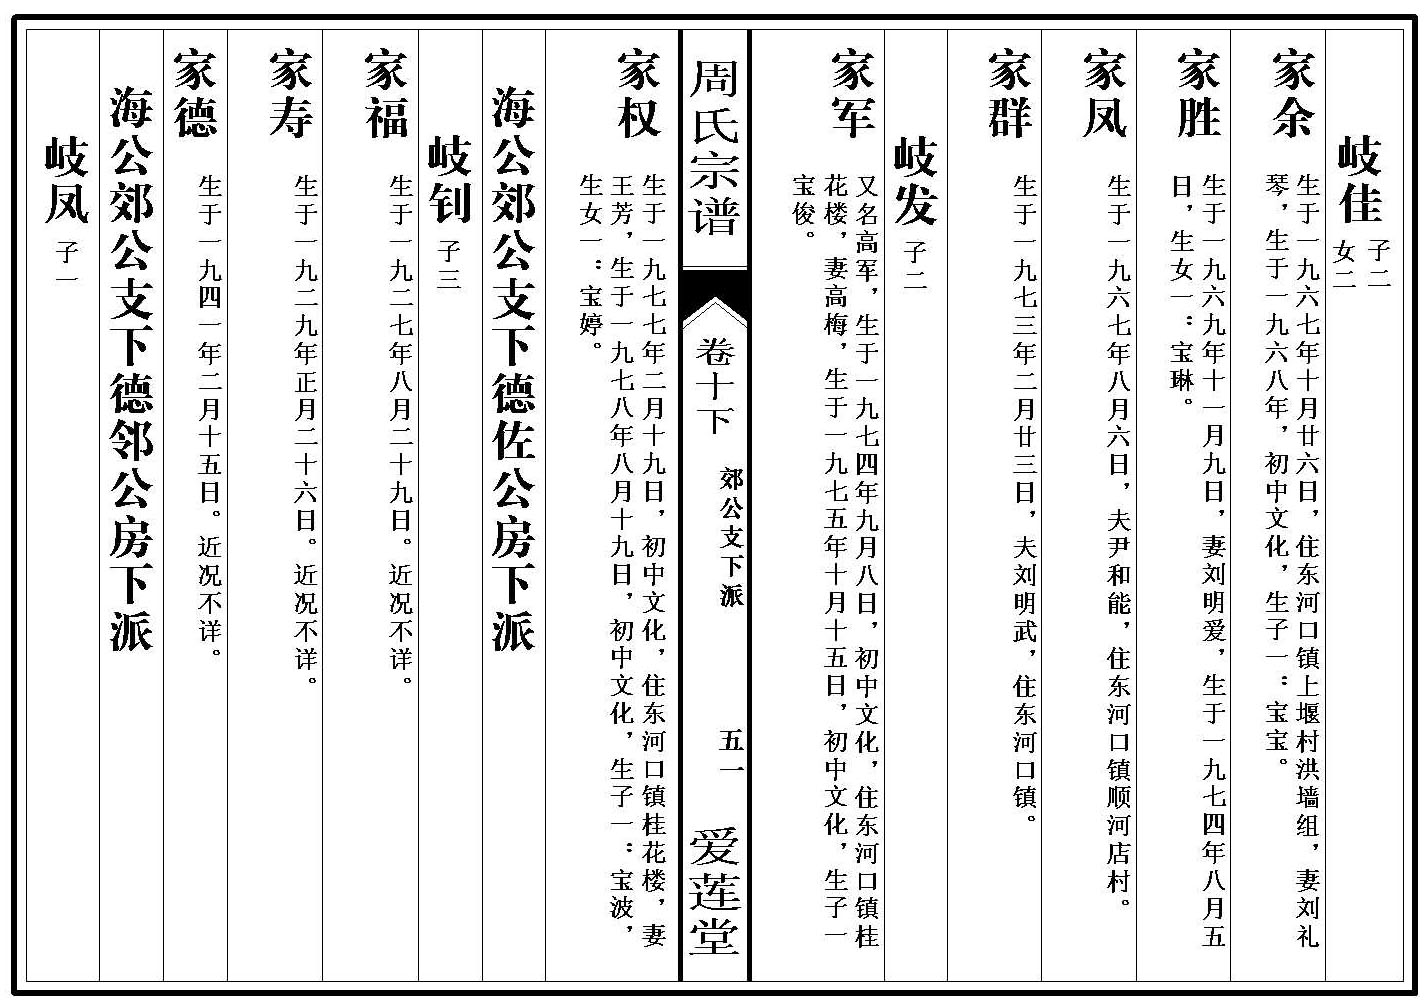 岐佳
子二
女二
家余
生于一九六七年十月廿六日，住东河口镇上堰村洪墙组，妻刘礼
琴，生于一九六八年，初中文化，生子一：宝宝。
家胜
生于一九六九年十一月九日，妻刘明爱，生于一九七四年八月五
日，生女一：宝琳。
家凤
生于一九六七年八月六日，夫尹和能，住东河口镇顺河店村。
家群
生于一九七三年二月廿三日，夫刘明武，住东河口镇。
岐发
子二
家军
又名高军，生于一九七四年九月八日，初中文化，住东河口镇桂
花楼，妻高梅，生于一九七五年十月十五日，初中文化，生子一
宝俊。
周氏宗谱
卷十下
郊公支下派
五一
爱莲堂
家权
生于一九七七年二月十九日，初中文化，住东河口镇桂花楼，妻
王芳，生于一九七八年八月十九日，初中文化，生子一：宝波，
生女一：宝婷。
海公郊公支下德佐公房下派
岐钊
子三
家福
生于一九二七年八月二十九日。近况不详。
家寿
生于一九二九年正月二十六日。近况不详。
家德
生于一九四一年二月十五日。近况不详。
海公郊公支下德邻公房下派
岐凤
子一